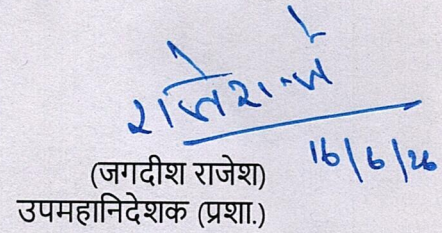 16/6/26
(जगदीश राजेश)
उपमहानिदेशक (प्रशा.)